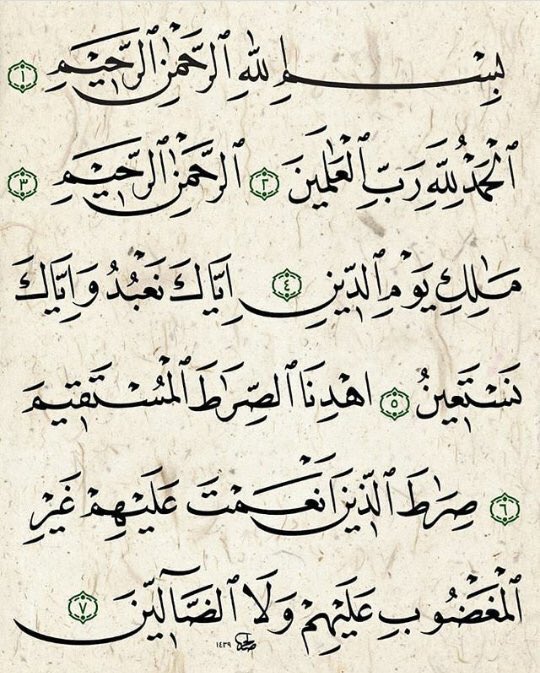 بِسْمِ ٱللَّهِ ٱلرَّحْمَٰنِ ٱلرَّحِيمِ ١
ٱلْحَمْدُ لِلَّهِ رَبِّ ٱلْعَٰلَمِينَ ٢ ٱلرَّحْمَٰنِ ٱلرَّحِيمِ ٣
مَٰلِكِ يَوْمِ ٱلدِّينِ ٤ اِيَّاكَ نَعْبُدُ وَاِيَّاكَ
نَسْتَعِينُ ٥ اهْدِنَا ٱلصِّرَٰطَ ٱلْمُسْتَقِيمَ
٦ صِرَٰطَ ٱلَّذِينَ اَنْعَمْتَ عَلَيْهِمْ غَيْرِ
ٱلْمَغْضُوبِ عَلَيْهِمْ وَلَا ٱلضَّآلِّينَ ٧
١٤٣٩